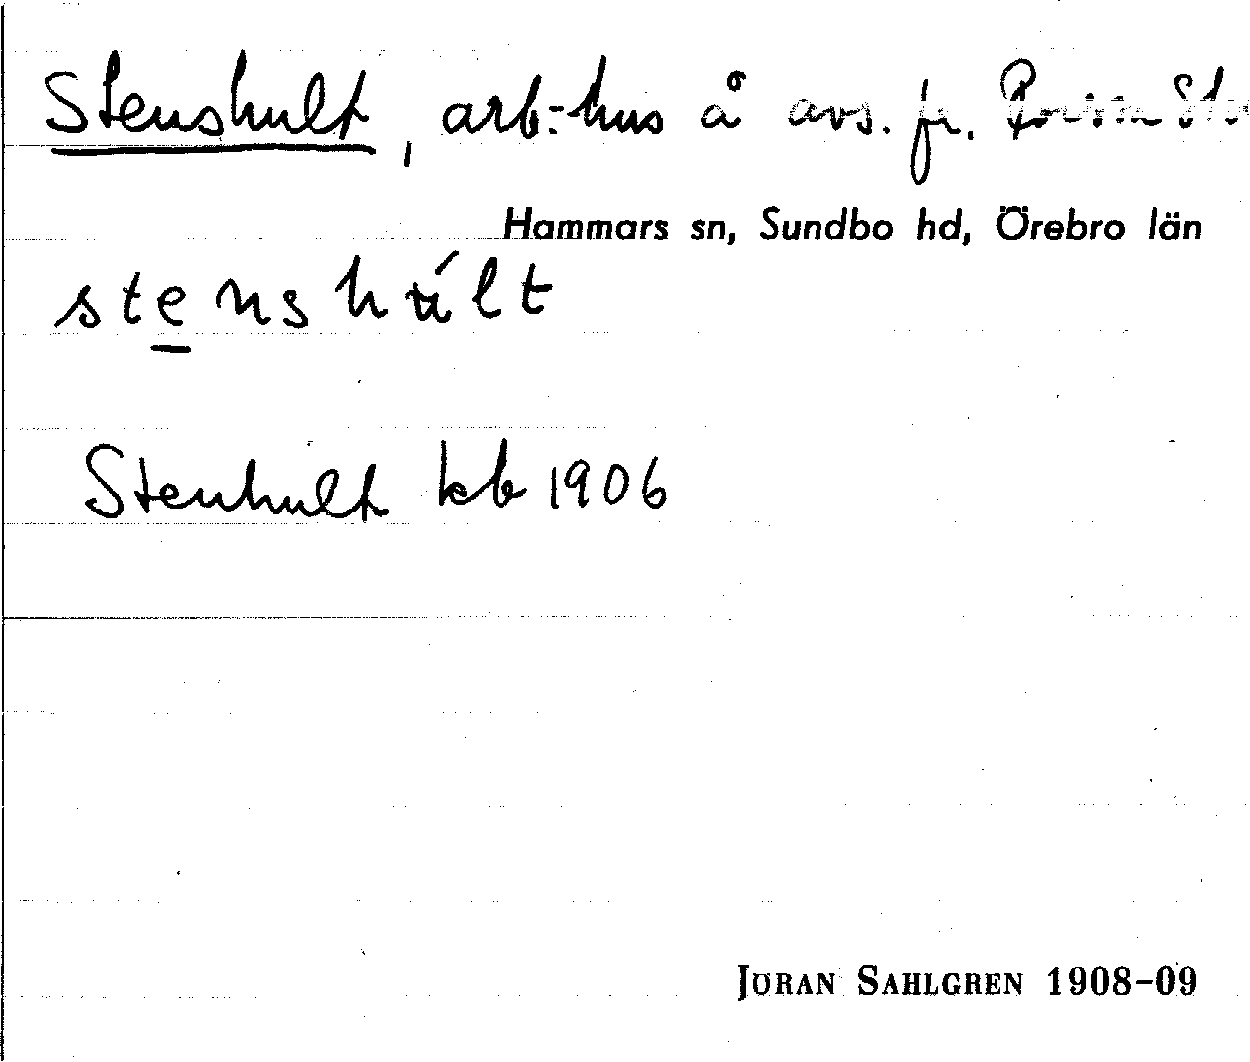 Stenshult, arb:hus å avs. fr.
Hammars sn, Sundbo hd, Örebro län
stenshúlt
Stenhult kb 1906
JÖRAN SAHLGREN 1908-09